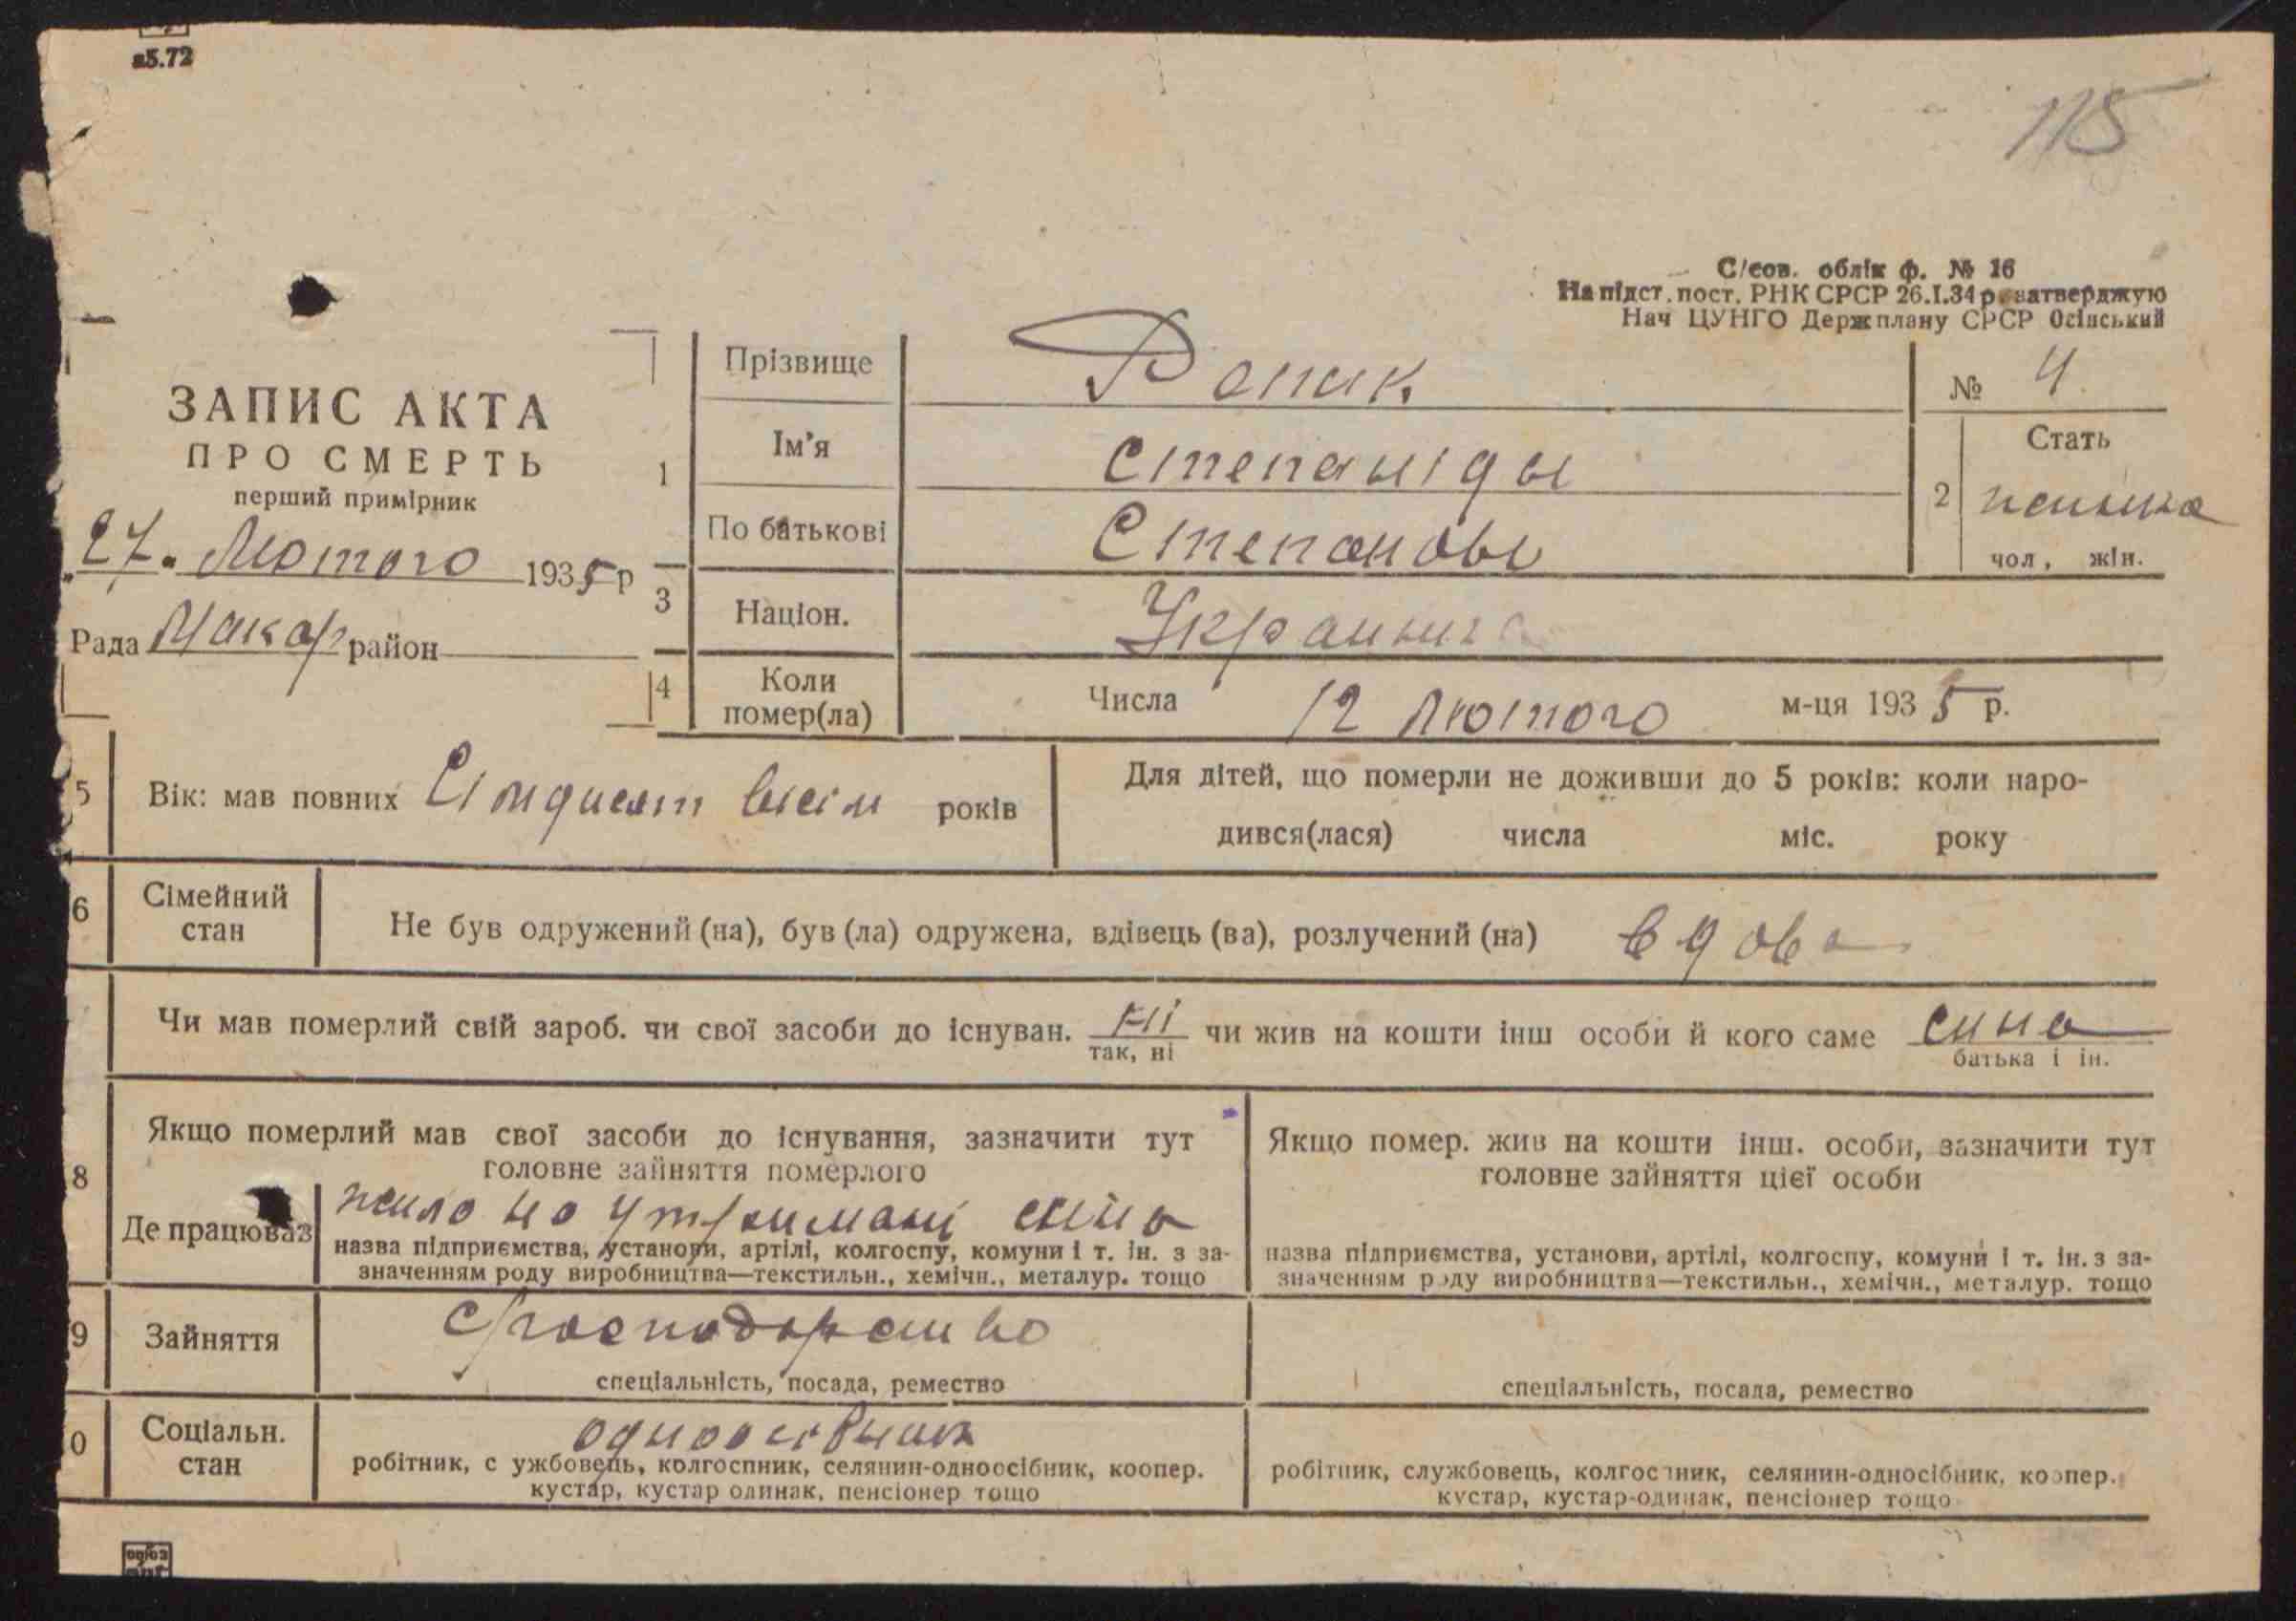 а5.72
115
С/сов. облік ф. № 16
На підст. пост. РНК СРСР 26.I.34 р. затверджую
Нач ЦУНГО Держплану СРСР Осінський
ЗАПИС АКТА
ПРО СМЕРТЬ
перший примірник
27. Лютого 1935 р
Рада Макар район
1
Прізвище
№ 4
Ім'я Степаніди
По батькові Степанови
2
Стать
чол, жін.
3 Націон.
4 Коли помер(ла) Числа 12 Лютого м-ця 1935 р.
5 Вік: мав повних Сімдисят вісім років
Для дітей, що померли не доживши до 5 років: коли наро-
дився(лася) числа міс. року
6 Сімейний стан Не був одружений (на), був (ла) одружена, вдівець (ва), розлучений (на) вдова
Чи мав померлий свій зароб. чи свої засоби до існуван. ні чи жив на кошти інш особи й кого саме сина
так, ні батька і ін.
8
Якщо померлий мав свої засоби до існування, зазначити тут
головне зайняття померлого
Якщо помер. жив на кошти інш. особи, зазначити тут
головне зайняття цієї особи
Де працював жила на утримані сина
назва підприємства, установи, артілі, колгоспу, комуни і т. ін. з за-
значенням роду виробництва—текстильн., хемічн., металур. тощо
назва підприємства, установи, артілі, колгоспу, комуни і т. ін. з за-
значенням роду виробництва—текстильн., хемічн., металур. тощо
9 Зайняття
спеціальність, посада, ремество
спеціальність, посада, ремество
0 Соціальн. стан
робітник, с ужбовець, колгоспник, селянин-одноосібник, коопер.
кустар, кустар одинак, пенсіонер тощо
робітник, службовець, колгоспник, селянин-односібник, коопер.
кустар, кустар-одинак, пенсіонер тощо